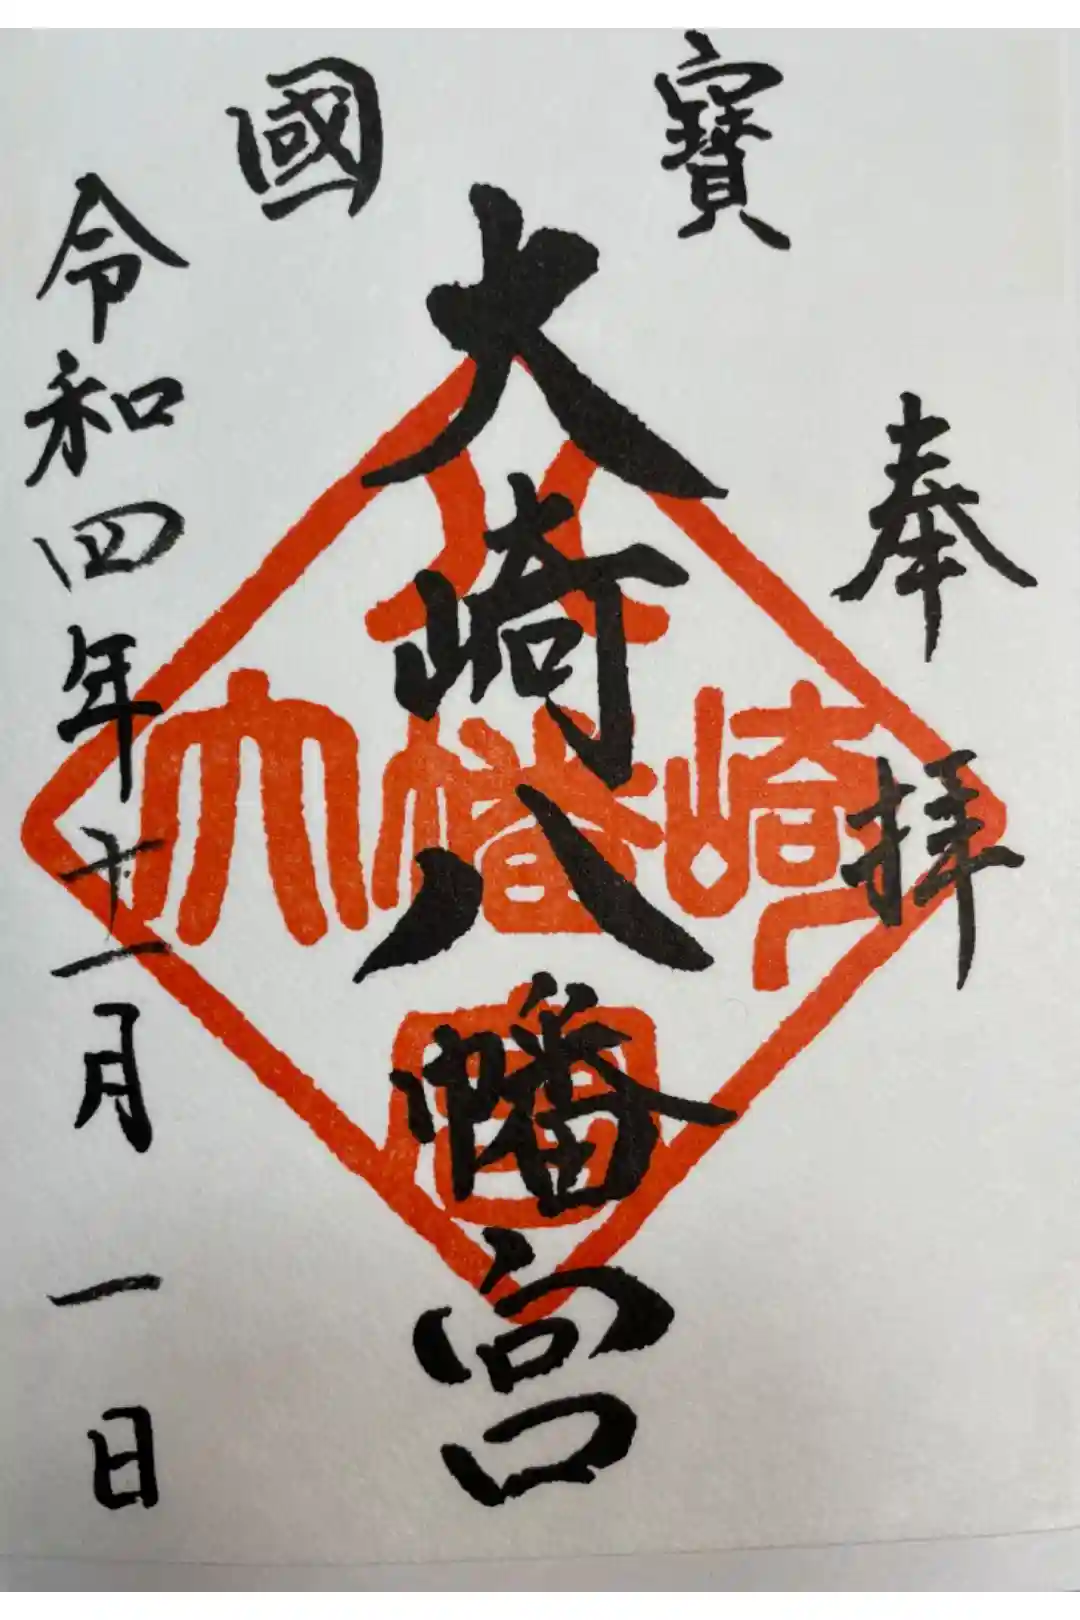 奉拝
寳
大崎八幡宮
國
令和四年十一月一日
大崎八幡宮